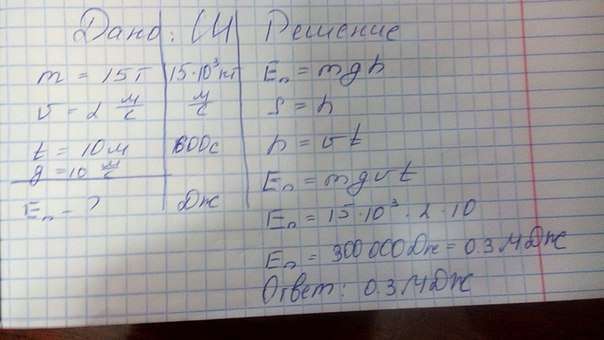 Дано: СИ Решение
m = 15т 15·10³кг Eп = mgh
v = 2 м/с м/с S = h
t = 10м 600с h = vt
g = 10 м/с Eп = mgvt
Eп - ? Дж Eп = 15·10³·2·10
Eп = 300 000 Дж = 0.3 МДж
Ответ: 0.3 МДж